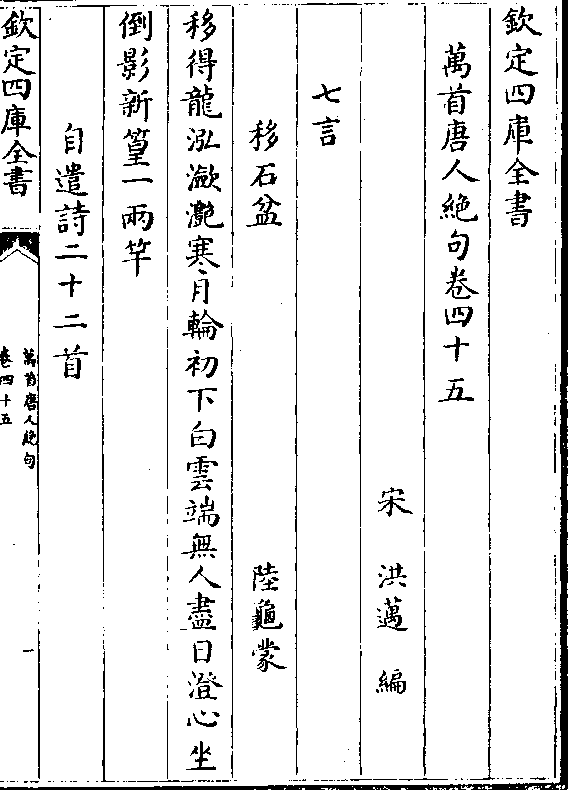 欽定四庫全書
萬首唐人絶句卷四十五
宋 洪邁 編
七言
移石盆 陸龜蒙
移得龍泓潋灧寒月輪初下白雲端無人盡日澄心坐
倒影新篁一兩竿
自遣詩二十二首
欽定四庫全書
萬首唐人絶句
卷四十五
一